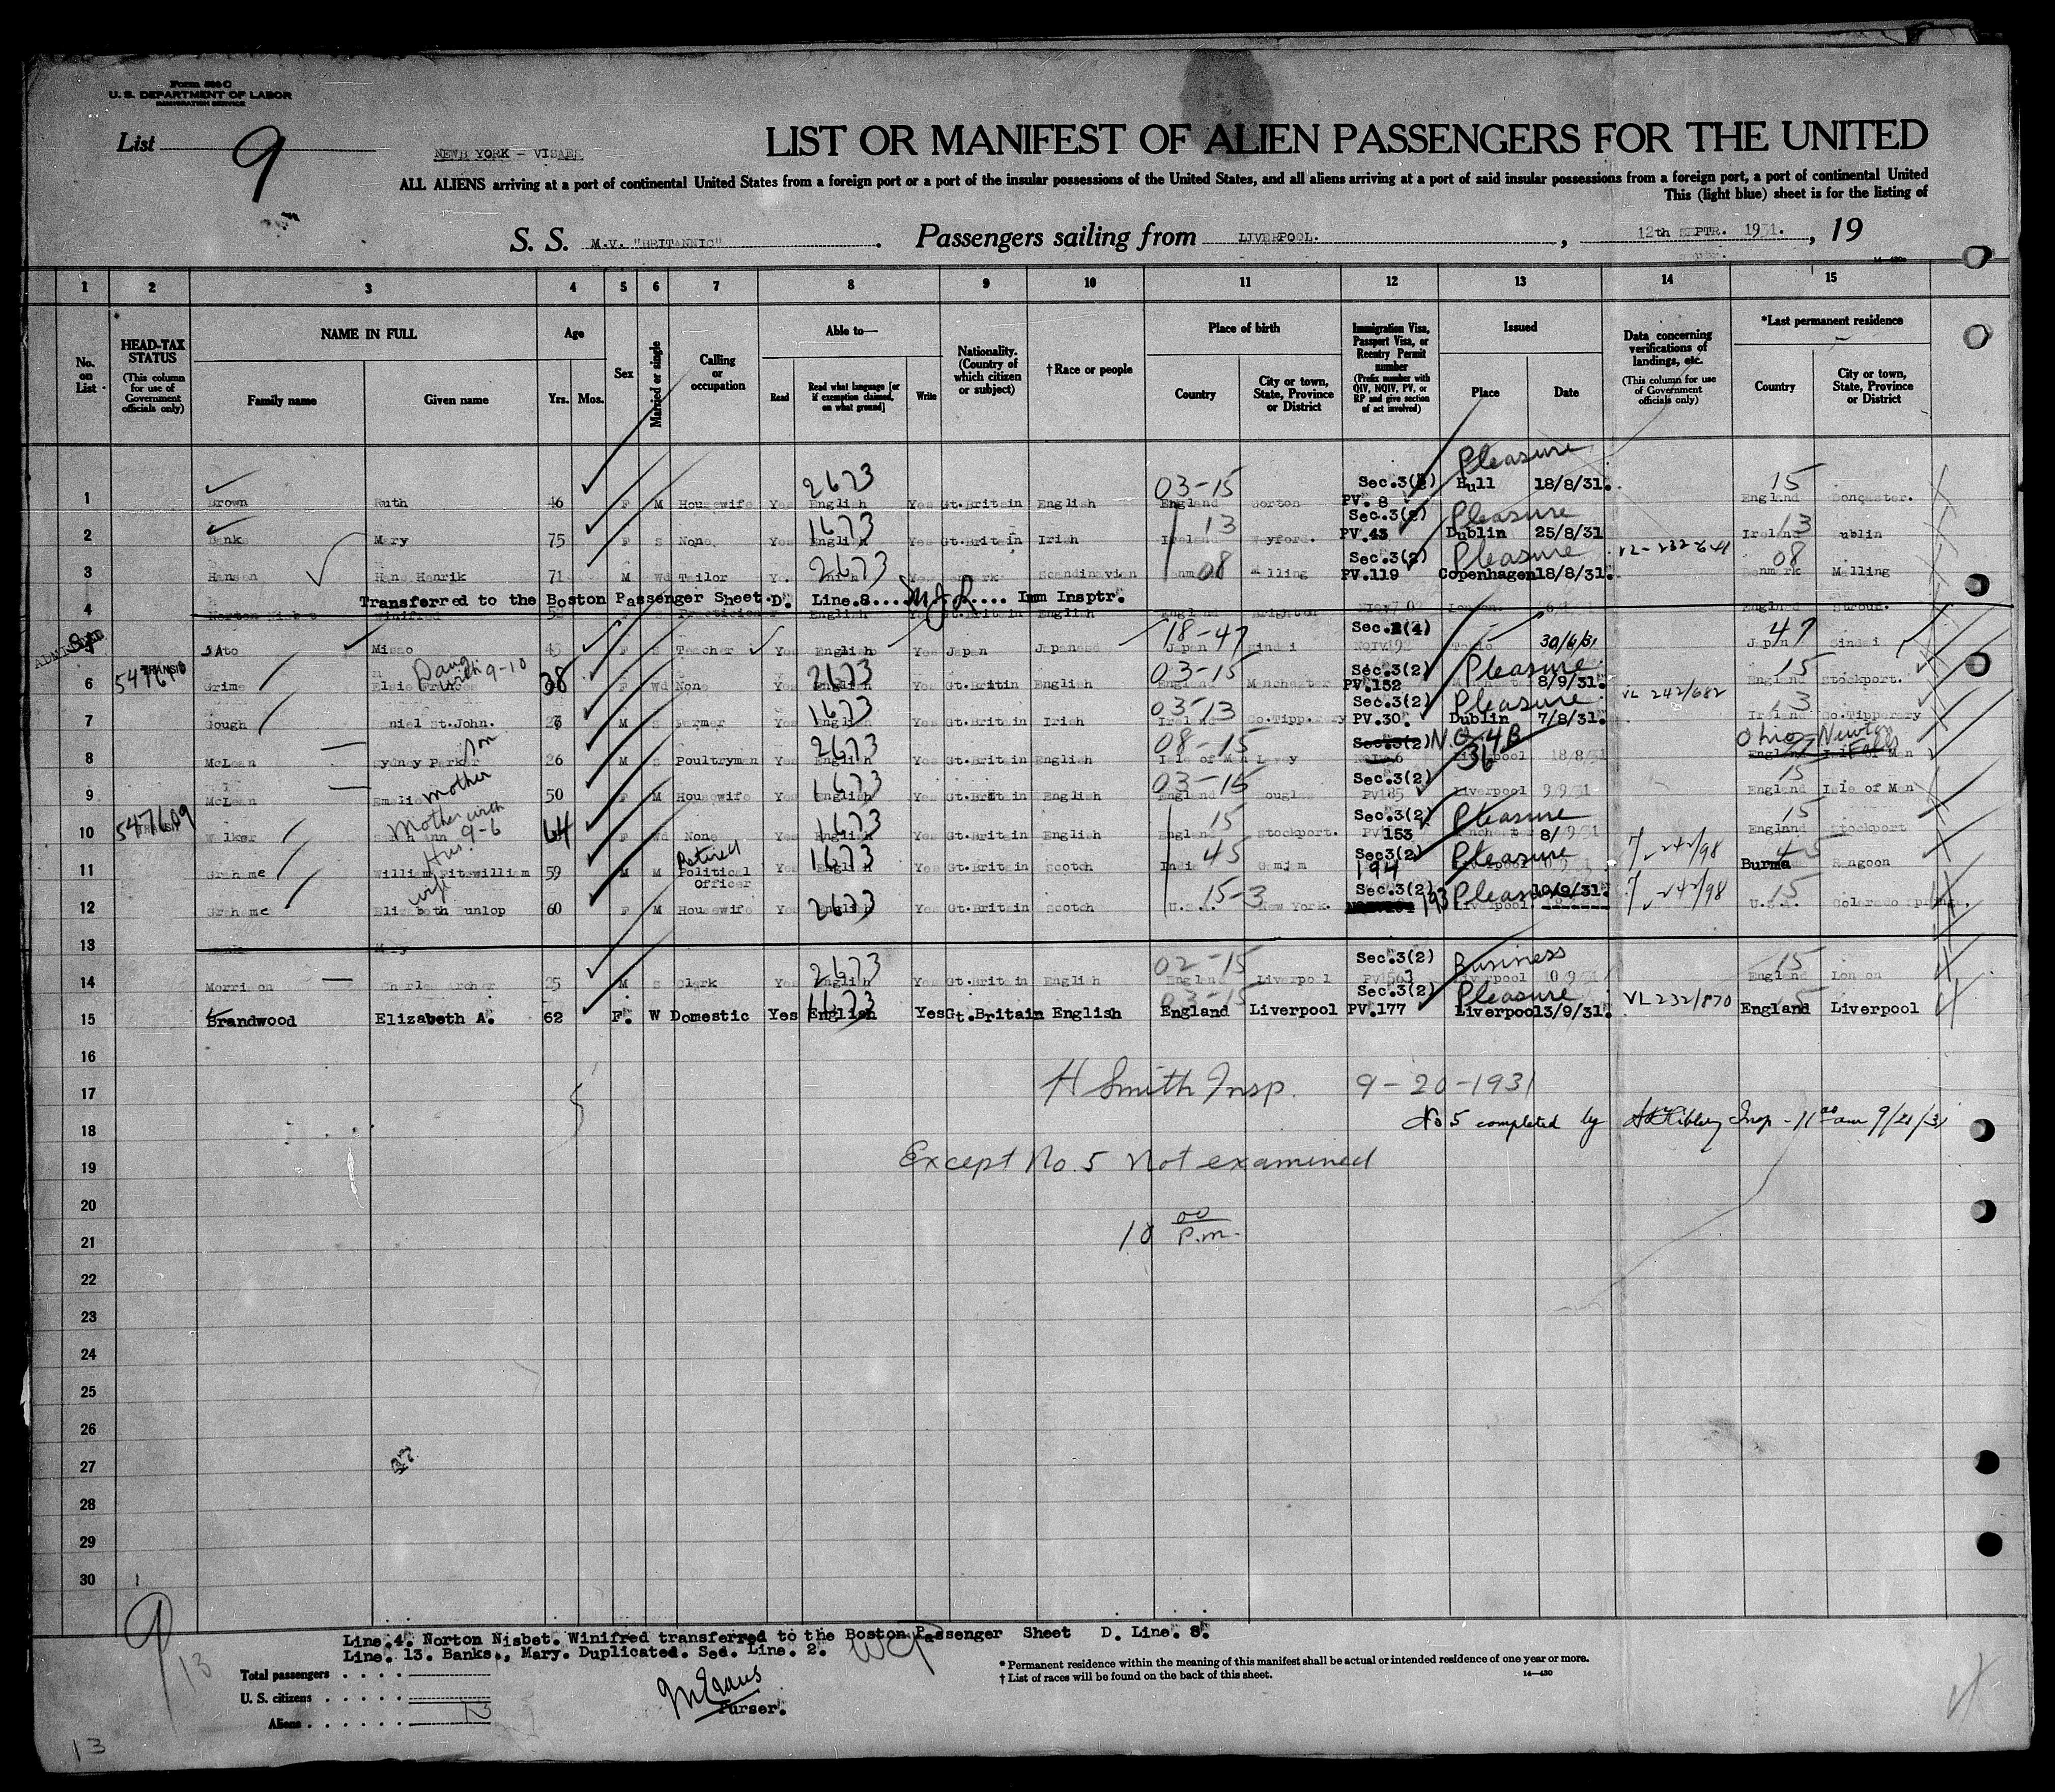 Form 500 C
U. S. DEPARTMENT OF LABOR
IMMIGRATION SERVICE
List 9
NEW YORK - VISAES
LIST OR MANIFEST OF ALIEN PASSENGERS FOR THE UNITED
ALL ALIENS arriving at a port of continental United States from a foreign port or a port of the insular possessions of the United States, and all aliens arriving at a port of said insular possessions from a foreign port, a port of continental United
This (light blue) sheet is for the listing of
S. S. M.V. "BRITANNIC". Passengers sailing from LIVERPOOL. , 12th SEPTR. 1931. , 19
1 2 3 4 5 6 7 8 9 10 11 12 13 14 15
No. on List
HEAD-TAX STATUS (This column for use of Government officials only)
NAME IN FULL
Family name Given name
Age
Yrs. Mos.
Sex
Married or single
Calling or occupation
Able to—
Read Read what language [or if exemption claimed, on what ground] Write
Nationality. (Country of which citizen or subject)
†Race or people
Place of birth
Country City or town, State, Province or District
Immigration Visa, Passport Visa, or Reentry Permit number (Prefix number with QIV, NQIV, PV, or RP and give section of act involved)
Issued
Place Date
Data concerning verifications of landings, etc. (This column for use of Government officials only)
*Last permanent residence
Country City or town, State, Province or District
2673 03-15 Sec.3(2) Pleasure 15
1 Brown Ruth 46 F M Housewife Yes English Yes Gt.Britain English England Gorton PV. 8 Hull 18/8/31. England Doncaster.
1673 13 Sec.3(2) Pleasure 13
2 Banks Mary 75 F S None. Yes English Yes Gt.Britain Irish Ireland PV.43 Dublin 25/8/31 Ireland Dublin
2673 08 Sec.3(2) Pleasure 08
3 Hansen Hans Henrik 71 M Wd Tailor Scandinavian Malling PV.119 Copenhagen 18/8/31. Denmark Malling
Transferred to the Boston Passenger Sheet. D. Line.8.... Imm Insptr.
4 Norton Nisbet Winifred English English England Brighton London. England Stroud.
18-47 Sec. (4) 47
5 Sato Misao 45 F S Teacher Yes English Yes Japan Japanese Japan Sindai Tokio 30/6/31 Japan Sindai
TRANSIT Daug with 9-10 2673 03-15 Sec.3(2) Pleasure 15
6 Grime Elsie Frances 38 F Wd None Yes English Yes Gt.Britin English England Manchester PV.152 Manchester 8/9/31. England Stockport.
1673 03-13 Sec.3(2) Pleasure VL 242/682 3
7 Gough Daniel St.John. M S Farmer Yes English Yes Gt.Britain Irish Ireland Co.Tipperary PV.30. Dublin 7/8/31. Ireland Co.Tipperary
Son 2673 08-15 Sec.3(2) N.Q. 4B 36 Ohio Newton Falls
8 McLean Sydney Parker 26 M S Poultryman Yes English Yes Gt.Britain English Isle of Man Liverpool 18/8/31 England Isle of Man
Mother 1673 03-15 Sec.3(2) 15
9 McLean Emelie 50 F M Housewife Yes English Yes Gt.Britain English England Douglas PV185 Liverpool 9/9/31 England Isle of Man
547609 Mother with 9-6 1673 15 Sec.3(2) Pleasure 15
10 Walker Sarah Ann 64 F Wd None Yes English Yes Gt.Britain English England Stockport. PV153 Manchester 8/9/31 England Stockport
Hus. Retired 1673 45 Sec3(2) Pleasure 242/98 45
11 Grahame William Fitzwilliam 59 M M Political Officer Yes English Yes Gt.Britain Scotch India 194 Liverpool Burma Rangoon
wife 2673 15-3 Sec.3(2) 193 Pleasure 10/9/31. 242/98 15
12 Grahame Elizabeth Dunlop 60 F M Housewife Yes English Yes Gt.Britain Scotch U.S.A. New York. Liverpool U.S.A. Colorado Springs.
13 Banks Mary
2673 02-15 Sec.3(2) Business 15
14 Morrison Charles Archer 25 M S Clerk Yes English Yes Gt.Britain English England Liverpool Liverpool 10/9/31 England London
1673 03-15 Sec.3(2) Pleasure VL 232/870 15
15 Brandwood Elizabeth A. 62 F. W Domestic Yes English Yes Gt.Britain English England Liverpool PV.177 Liverpool 3/9/31. England Liverpool
16
17 H Smith Insp. 9-20-1931
18 No 5 completed by Insp - 11 00 am 9/21/31
19 Except No. 5 Not examined
20
21 10 00 P.m.
22
23
24
25
26
27
28
29
30
9
13
Line.4. Norton Nisbet. Winifred transferred to the Boston Passenger Sheet D. Line. 8.
Line. 13. Banks., Mary. Duplicated. Sed. Line. 2.
Total passengers . . . .
U. S. citizens . . . . .
Aliens . . . . . .
Purser.
* Permanent residence within the meaning of this manifest shall be actual or intended residence of one year or more.
† List of races will be found on the back of this sheet. 14—430
13